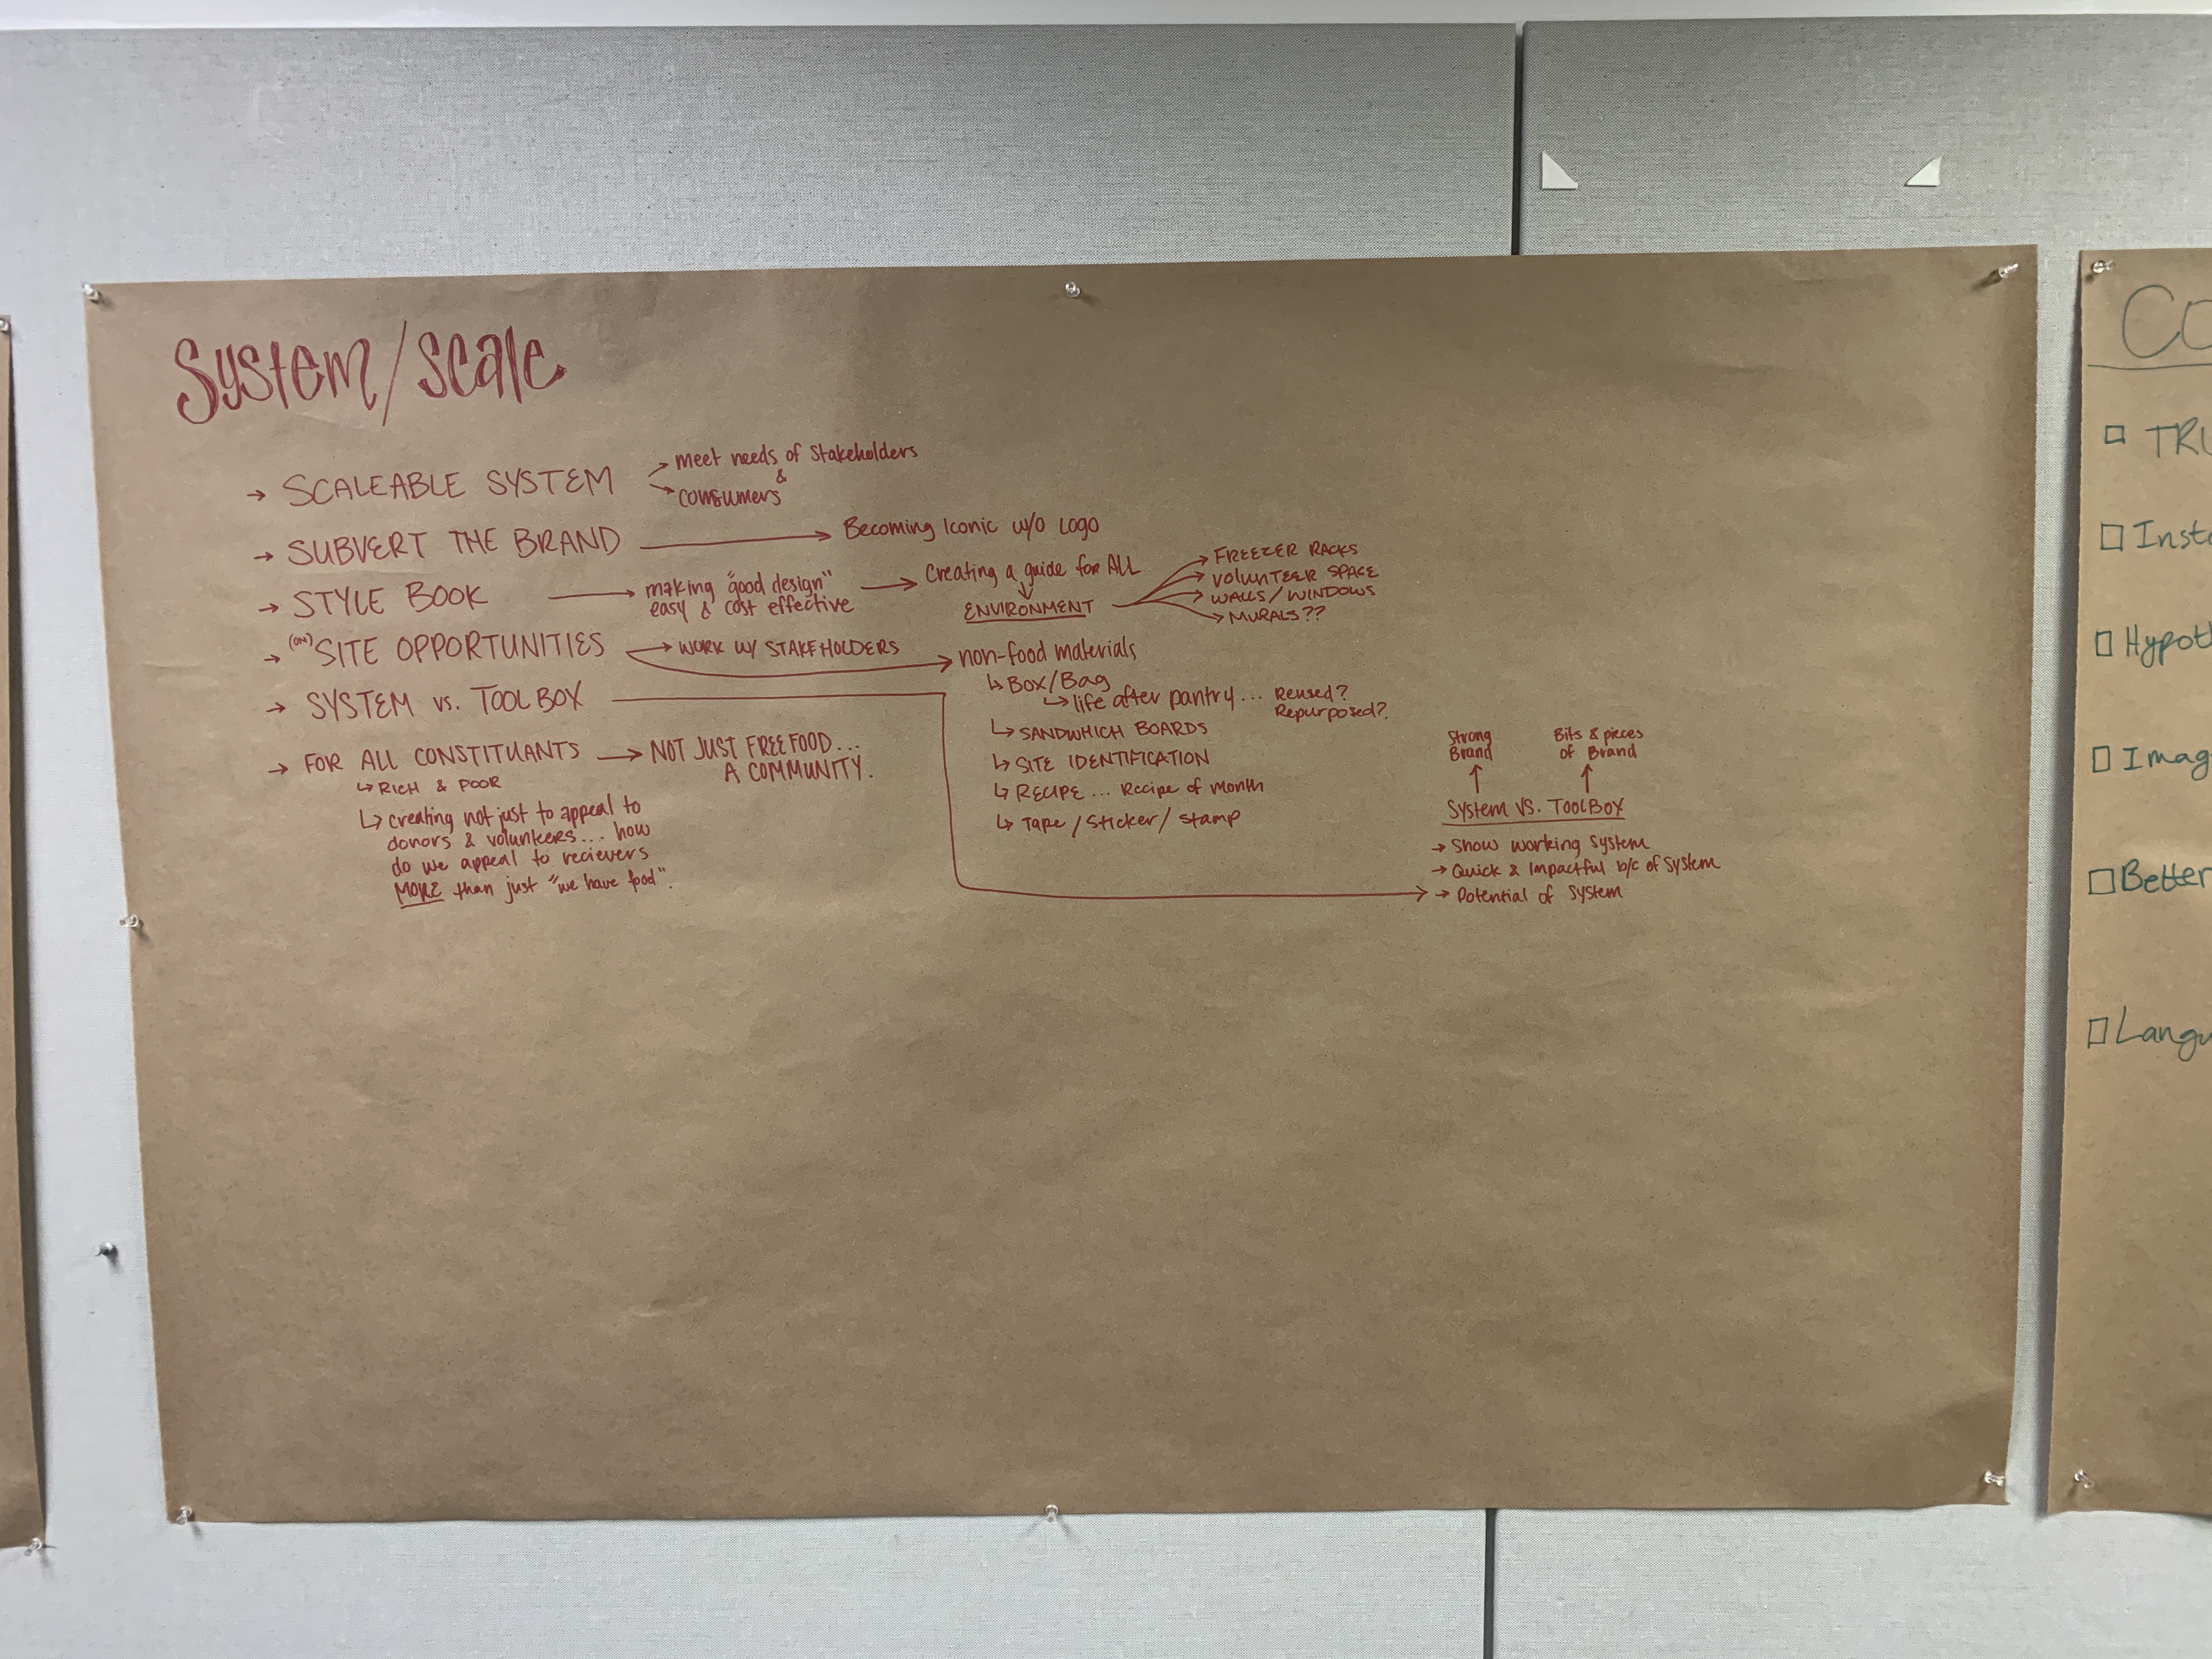 System/Scale
→ SCALEABLE SYSTEM
→ meet needs of Stakeholders
&
→ consumers
→ SUBVERT THE BRAND → Becoming Iconic w/o Logo
→ STYLE BOOK → making "good design"
easy & cost effective
→ Creating a guide for ALL
↓
ENVIRONMENT
→ FREEZER RACKS
→ VOLUNTEER SPACE
→ WALLS/WINDOWS
→ MURALS??
→ (ON) SITE OPPORTUNITIES → WORK W/ STAKEHOLDERS
→ non-food materials
↳ Box/Bag
↳ life after pantry... Reused?
Repurposed?
↳ SANDWHICH BOARDS
↳ SITE IDENTIFICATION
↳ RECIPE... Recipe of Month
↳ Tape/Sticker/Stamp
→ SYSTEM vs. TOOLBOX
→ FOR ALL CONSTITUANTS → NOT JUST FREE FOOD...
A COMMUNITY.
↳ RICH & POOR
↳ creating not just to appeal to
donors & volunteers... how
do we appeal to recievers
MORE than just "we have food".
Strong
Brand
Bits & pieces
of Brand
↑ ↑
System VS. TOOLBOX
→ Show working System
→ Quick & Impactful b/c of System
→ Potential of System
CO
□ TRU
□ Inst
□ Hypot
□ Imag
□ Better
□ Langu